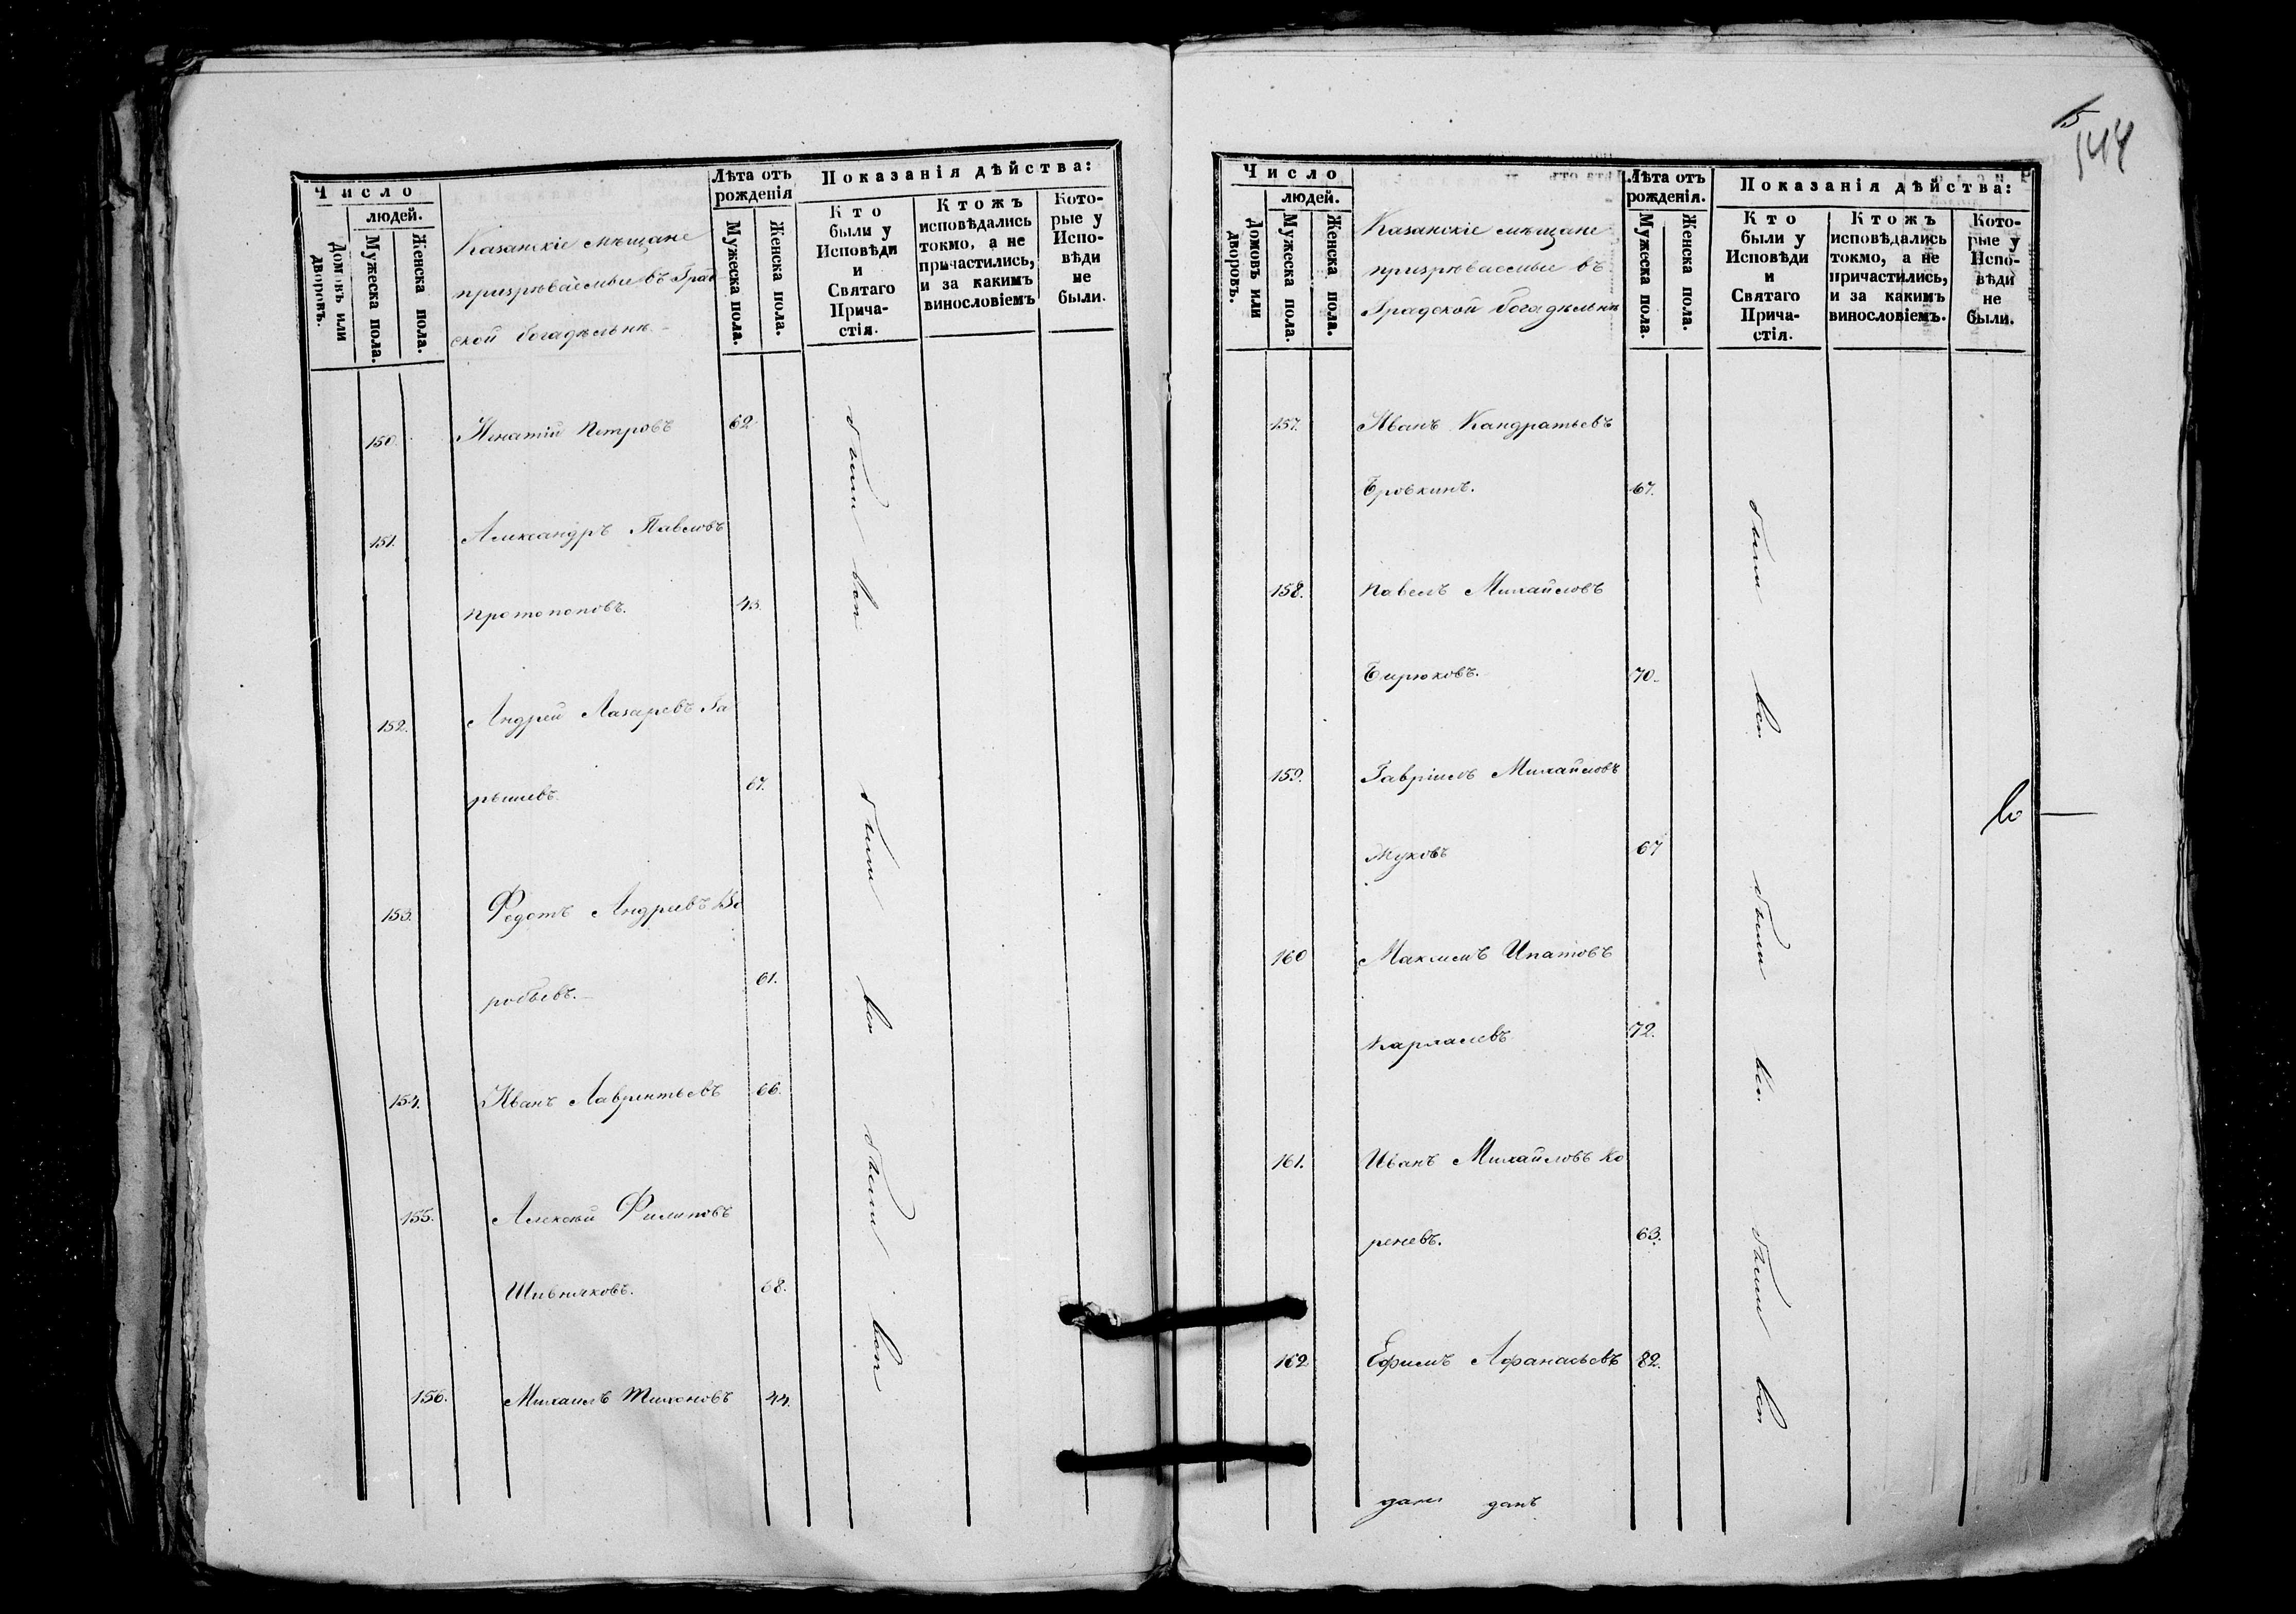 Число
людей.
Домовъ или дворовъ.
Мужеска пола.
Женска пола.
Казанскіе мѣщане
призрѣваемые въ Град-
ской богадѣльнѣ
Лѣта отъ
рожденія
Мужеска пола.
Женска пола.
Показанія дѣйства:
Кто
были у
Исповѣди
и
Святаго
Прича-
стія.
Ктожъ
исповѣдались
токмо, а не
причастились,
и за какимъ
винословіемъ
Кото-
рые у
Испо-
вѣди
не
были.
150. Игнатій Петровъ 62
151. Александръ Павловъ
Протопоповъ. 43.
152. Андрей Лазаревъ Га
рышевъ. 67.
153. Федотъ Андреевъ Во
робьевъ. 61.
154. Иванъ Лаврентьевъ 66.
155. Алексѣй Филиповъ
68.
156. Михаилъ Тихоновъ 44.
были всѣ
были всѣ
были всѣ
15
144
Число
людей.
Домовъ или дворовъ.
Мужеска пола.
Женска пола.
Казанскіе мѣщане
призрѣваемые въ
Градской богадѣльнѣ
Лѣта отъ
рожденія.
Мужеска пола.
Женска пола.
Показанія дѣйства:
Кто
были у
Исповѣди
и
Святаго
Прича-
стія.
Ктожъ
исповѣдались
токмо, а не
причастились,
и за какимъ
винословіемъ.
Кото-
рые у
Испо-
вѣди
не
были.
157. Иванъ Кандратьевъ
Бровкинъ. 67.
158. Павелъ Михайловъ
Бирюковъ. 70.
159. Гавріилъ Михайловъ
Жуковъ 67
160 Максимъ Ипатовъ
72.
161. Иванъ Михайловъ Ко
реневъ. 63.
162 Ефимъ Афанасьевъ 82.
были всѣ
были всѣ
были всѣ